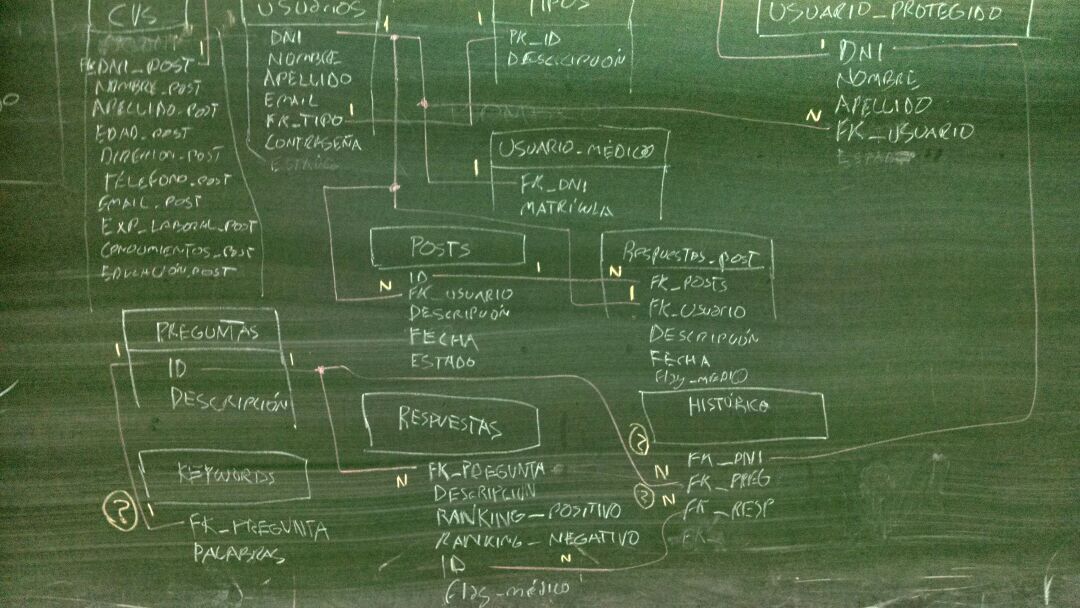 CVS
FK DNI_POST
NOMBRE_POST
APELLIDO_POST
EDAD_POST
DIRECCION_POST
TELEFONO_POST
EMAIL_POST
EXP_LABORAL_POST
CONOCIMIENTOS_POST
EDUCACIÓN_POST
1
USUARIOS
DNI
NOMBRE
APELLIDO
EMAIL
FK_TIPO
CONTRASEÑA
ESTADO
1
1
TIPOS
PK_ID
DESCRIPCIÓN
1
USUARIO_PROTEGIDO
DNI
NOMBRE
APELLIDO
FK_USUARIO
1
N
USUARIO_MÉDICO
FK_DNI
MATRÍCULA
1
POSTS
ID
FK_USUARIO
DESCRIPCIÓN
FECHA
ESTADO
1
N
RESPUESTAS_POST
FK_POSTS
FK_USUARIO
DESCRIPCIÓN
FECHA
Flag_MEDICO
N
1
PREGUNTAS
ID
DESCRIPCIÓN
1
1
KEYWORDS
FK_PREGUNTA
PALABRAS
?
1
RESPUESTAS
FK_PREGUNTA
DESCRIPCION
RANKING_POSITIVO
RANKING_NEGATIVO
ID
Flag_médico
N
N
HISTÓRICO
FK_DNI
FK_PREG
FK_RESP
FK_
?
N
?
N